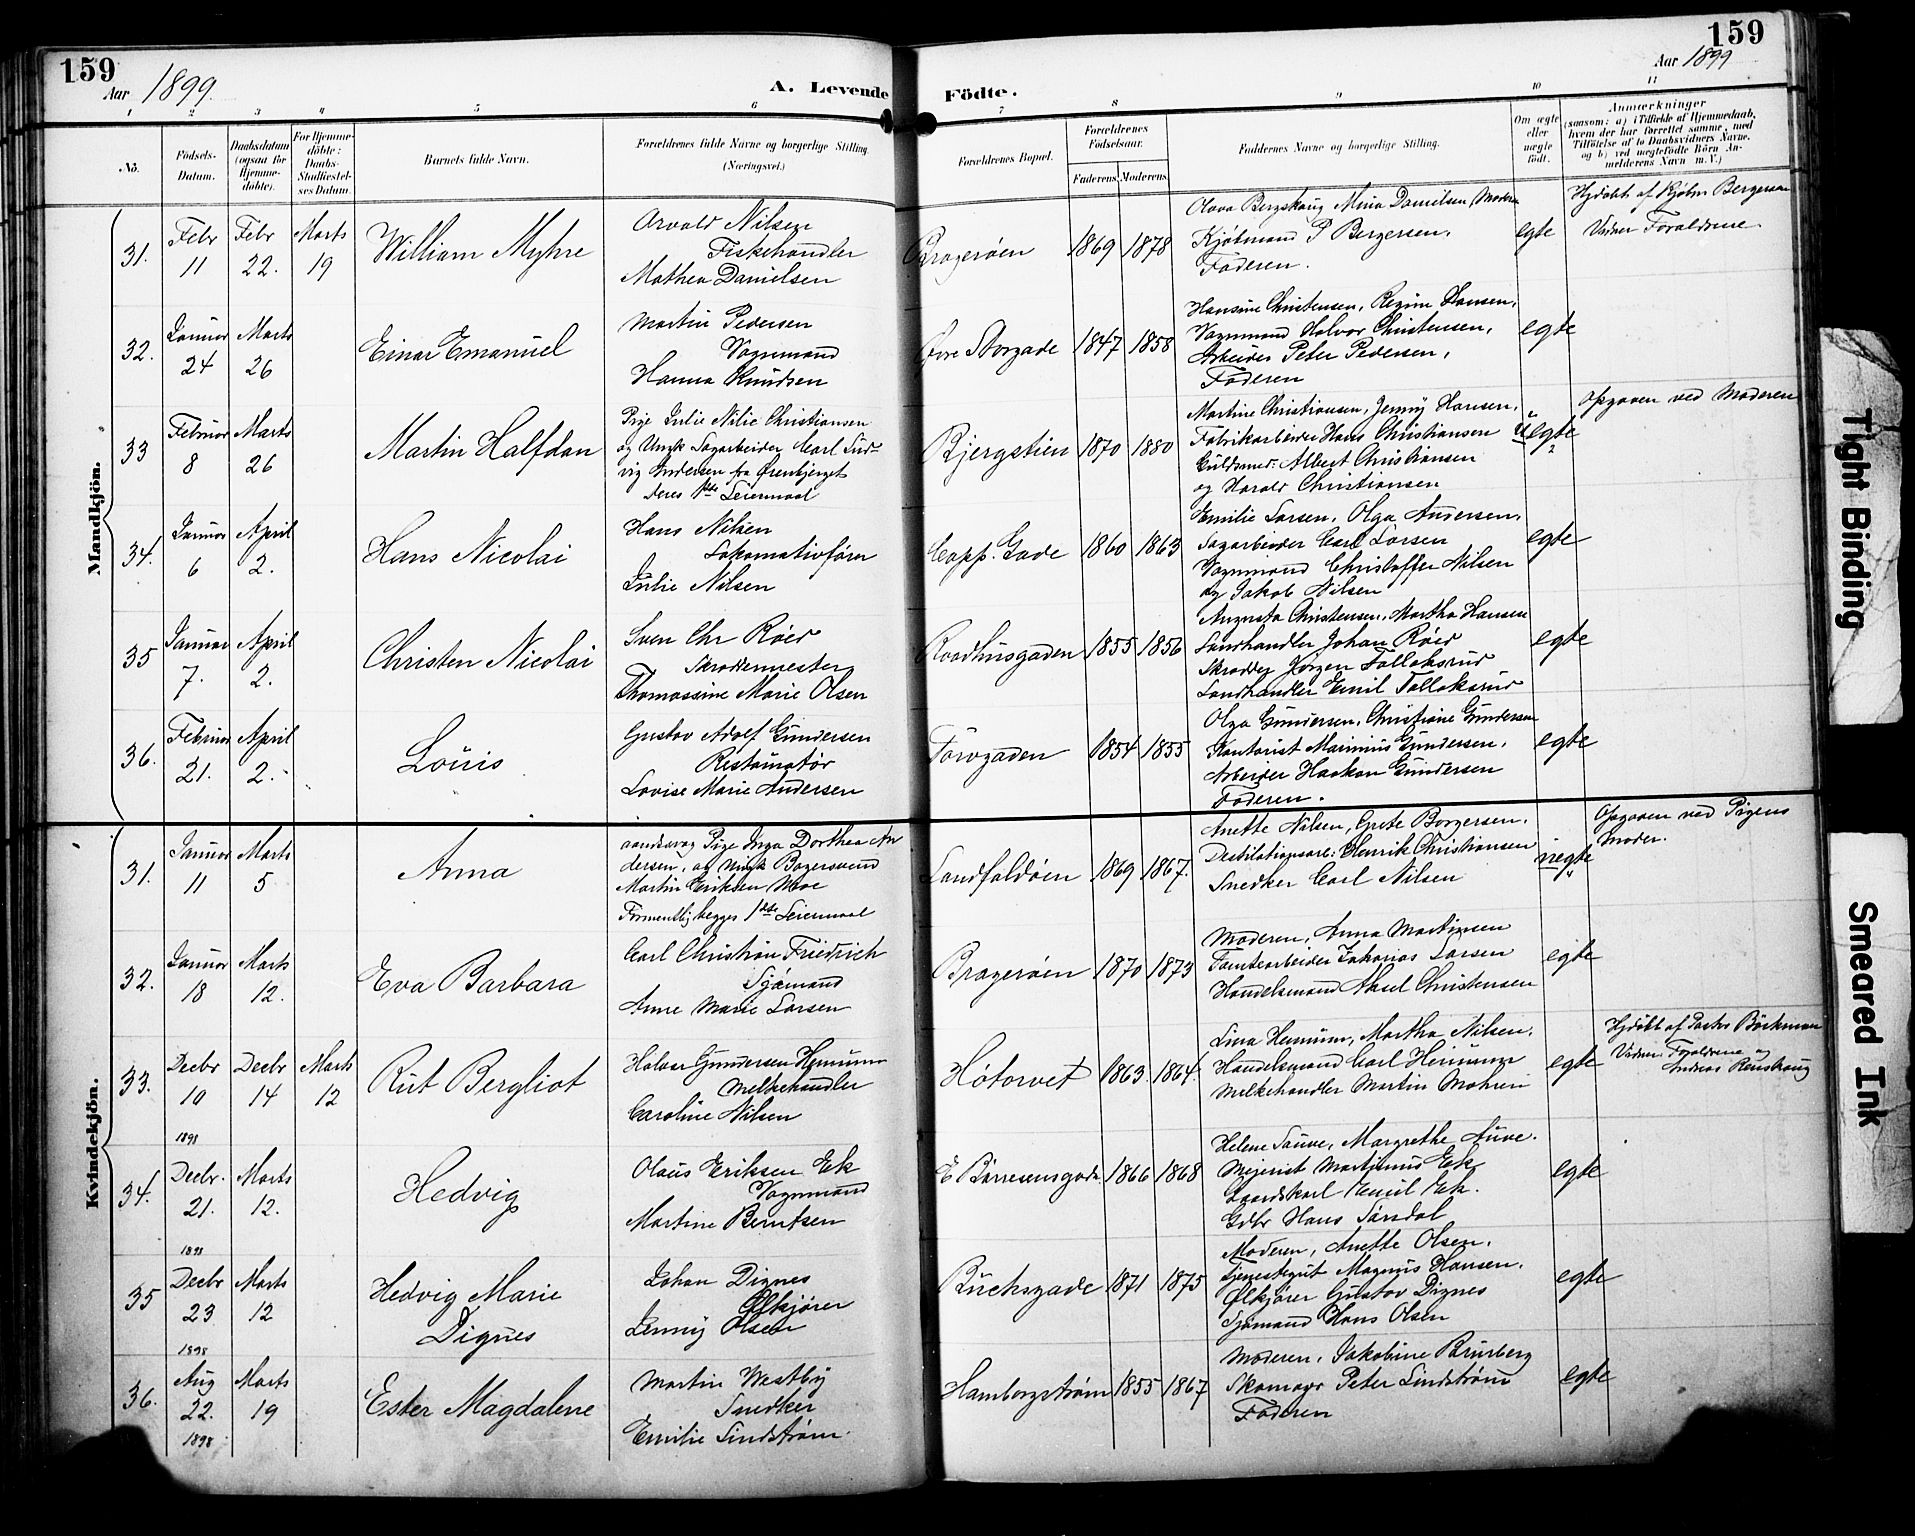 159
Aar 1899.
A. Levende Födte.
159
Aar 1899
1 2 3 4 5 6 7 8 9 10 11
No.
Födsels-Datum.
Daabsdatum (ogsaa for Hjemmedöbte).
For Hjemmedöbte: Daabs-Stadfæstelses Datum.
Barnets fulde Navn.
Forældrenes fulde Navne og borgerlige Stilling (Næringsvei.)
Forældrenes Bopæl.
Forældrenes Fødselsaar.
Faderens. Moderens.
Faddernes Navne og borgerlige Stilling.
Om ægte eller uægte födt.
Anmærkninger
(saasom: a) i Tilfælde af Hjemmedaab, hvem der har forrettet samme, med Tilföielse af to Daabsvidners Navne, og b) ved uægtefödte Börn Anmelderens Navn m. V.)
Mandkjön.
31. Febr 11 Febr 22. Marts 19
William Myhre
Arvald Nilsen
Fiskehandler
Mathea Danielsen
Bragerøen 1869 1878
Olava Bergskaug Mina Danielsen Moderen
Kjøbmand P Bergersen.
Faderen.
egte
Hjdøbt af Kjøbm Bergersen
Vidner Forældrene.
32. Januar 24 Marts 26
Einar Emanuel
Martin Pedersen
Vognmand
Hanna Knudsen
Øvre Storgade 1847 1858
Hansine Christensen, Regine Hansen,
Vognmand Halvor Christensen,
Arbeider Peter Pedersen,
Faderen
egte
33 Februar 8 Marts 26
Martin Halfdan
Pige Julie Nilie Christiansen
og Ungk Sagarbeider Carl Lud-
vig Andersen fra Ørenbjerget
deres 1ste Leiermaal
Bjergstien 1870 1880
Martine Christiansen, Jenny Hansen,
Fabrikarbeider Hans Christiansen
Guldsmed: Albert Christiansen
og Harald Christiansen
uegte
Opgaven ved Moderen
34. Januar 6 April 2.
Hans Nicolai
Hans Nilsen
Lokomotivfører
Julie Nilsen
Capp. Gade 1860 1863
Emilie Larsen, Olga Andersen,
Sagarbeider Carl Larsen
Vognmand Christoffer Nilsen
og Jakob Nilsen
egte
35 Januar 7. April 2.
Christen Nicolai
Sven Chr Røed
Skrædermester
Thomassine Marie Olsen
Raadhusgaden 1855 1856
Augusta Christensen, Martha Hansen
Landhandler Johan Røed
Skrædder Jørgen Tollaksrud
Landhandler Emil Tollaksrud
egte
36. Februar 21. April 2.
Louis
Gustav Adolf Gundersen
Restauratør
Lovise Marie Andersen
Torvgaden 1854 1855
Olga Gundersen, Christiane Gundersen
Kontorist Marinius Gundersen,
Arbeider Haakon Gundersen
Faderen.
egte
Kvindekjön.
31. Januar 11 Marts 5
Anna
aandssvag Pige Inga Dorthea An
dersen, og Ungk Bagersvend
Martin Eriksen Moe
Formentlig begges 1ste Leiermaal
Landfaldøen 1869 1867.
Anette Nilsen, Grete Borgersen,
Destilationsarb: Henrik Christiansen
Snedker Carl Nilsen
uegte
Opgaven ved Pigens
Moder.
32. Januar 18 Marts 12.
Eva Barbara
Carl Christian Friedrich
Sjømand
Anne Marie Larsen
Bragerøen 1870 1873
Moderen, Anna Martinsen
Tomtearbeider Zakarias Larsen
Handelsmand Aksel Christensen
egte
33. Decbr 10 1898 Decbr 14 Marts 12
Rut Bergliot
Halvor Gundersen Hennum
Melkehandler
Caroline Nilsen
Høtorvet 1863. 1864.
Lina Hennum, Martha Nilsen,
Handelsmand Carl Hennum
Melkehandler Martin Mohren
egte
Hjdøbt af Pastor Böckman
Vidner: Forældrene og
Andreas Renskaug
34. Decbr. 21. 1898 Marts 12.
Hedvig
Olaus Eriksen Ek
Vognmand
Martine Berntsen
E Børresensgade 1866 1868
Helene Sauve, Margrethe Auve.
Meierist Martinius Ek
Gaardskarl Emil Ek.
Gdbr Hans Sørsdal
egte
35 Decbr 23 1898 Marts 12
Hedvig Marie
Dignes
Johan Dignes
Ølkjører
Jenny Olsen
Buchsgade 1871 1875
Moderen, Anette Olsen,
Tjenestegut Magnus Hansen,
Ølkjører Gustav Dignes
Sjømand Hans Olsen
egte
36. Aug 22. 1898 Marts 19
Ester Magdalene
Martin Westby
Snedker
Emilie Lindstrøm.
Hamborgstrøm 1855 1867
Moderen, Jakobine Brusberg
Skomager Peter Lindstrøm
Faderen
egte
Tight Binding
Smeared Ink